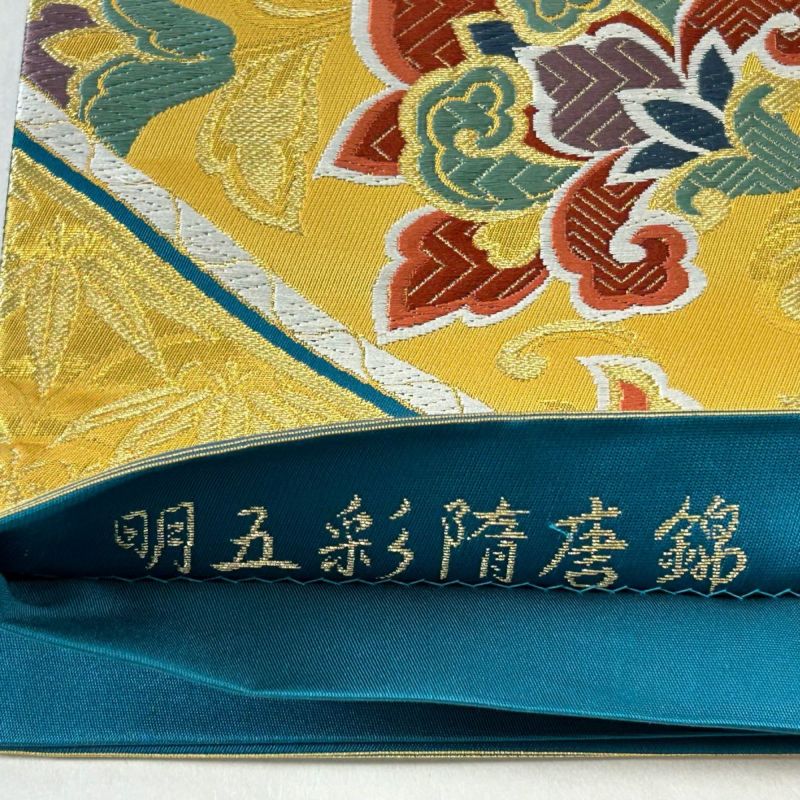 明五彩隋唐錦